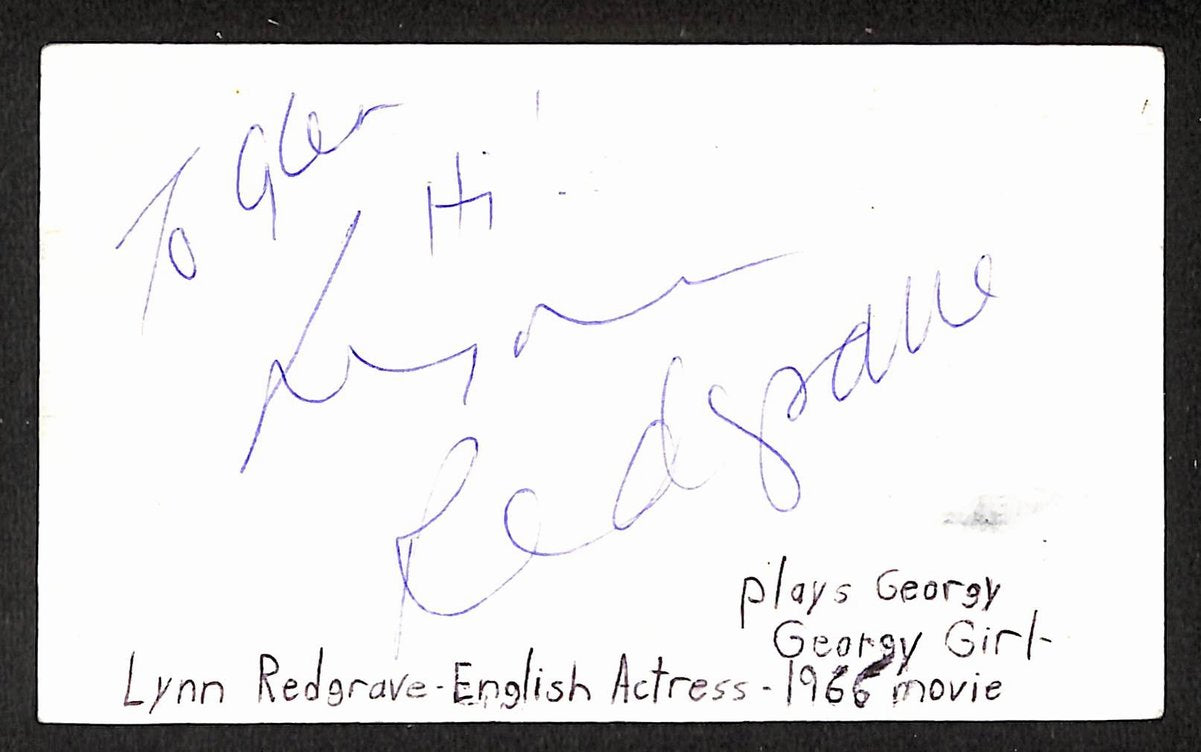 To Glen
Hi!
Lynn
Redgrave
plays Georgy
Georgy Girl-
Lynn Redgrave-English Actress-1966 movie